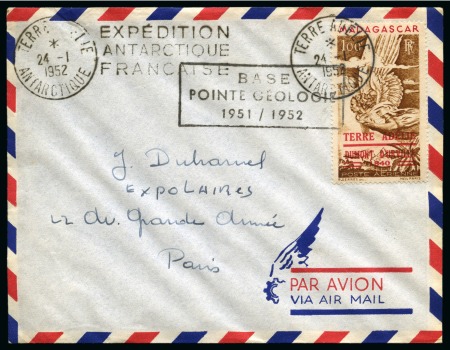 TERRE ADÉLIE
*
24 -1
1952
ANTARCTIQUE
EXPÉDITION
ANTARCTIQUE
FRANÇAISE
BASE
POINTE GEOLOGIE
1951 / 1952
TERRE ADÉLIE
*
24 -1
1952
ANTARCTIQUE
MADAGASCAR
100F RF
TERRE ADÉLIE
DUMONT D'URVILLE
1840
POSTE AÉRIENNE
J. Duhamel
EXPOLAIRES
12 Av. Grande Armée
Paris
PAR AVION
VIA AIR MAIL